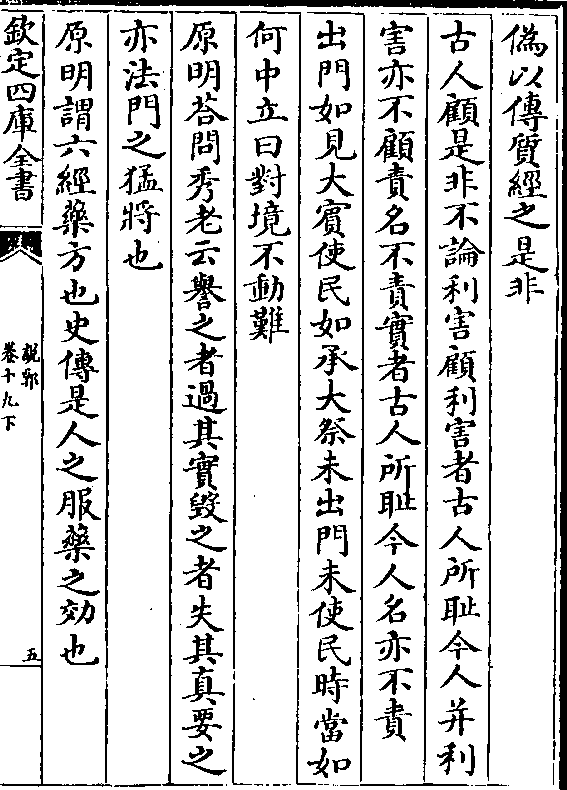 偽以傳質經之是非
古人顧是非不論利害顧利害者古人所耻今人并利
害亦不顧責名不責實者古人所耻今人名亦不責
出門如見大賔使民如承大祭未出門未使民時當如
何中立曰對境不動難
原明荅問秀老云譽之者過其實毀之者失其真要之
亦法門之猛將也
原明謂六經藥方也史傳是人之服藥之効也
欽定四庫全書
說郛
卷十九下
五